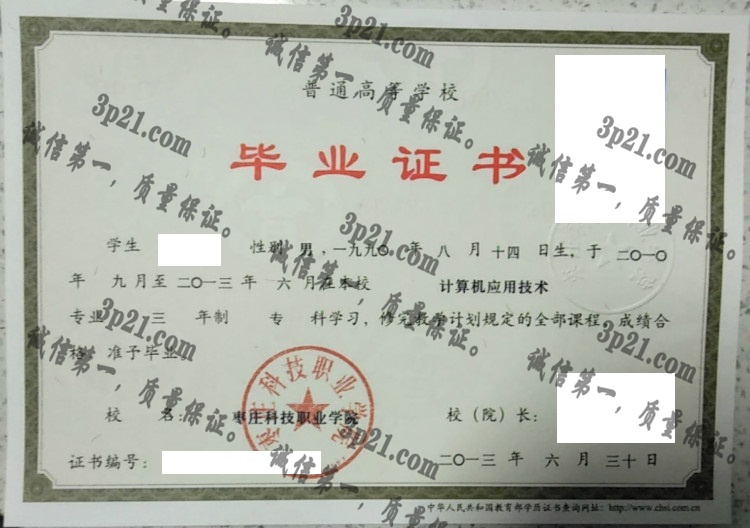 普通高等学校
毕业证书
学生 性别 男，一九九〇年 八 月 十四 日生，于 二〇一〇
年 九 月至 二〇一三 年 六 月在本校 计算机应用技术
专业 三 年制 专 科学习，修完教学计划规定的全部课程，成绩合
格，准予毕业。
校 名： 枣庄科技职业学院 校（院）长：
枣庄科技职业学院
证书编号： 二〇一三 年 六 月 三十 日
中华人民共和国教育部学历证书查询网址：http://www.chsi.com.cn
3p21.com
诚信第一，质量保证。
3p21.com
诚信第一，质量保证。
3p21.com
诚信第一，质量保证。
3p21.com
诚信第一，质量保证。
3p21.com
诚信第一，质量保证。
3p21.com
诚信第一，质量保证。
3p21.com
诚信第一，
质量保证。